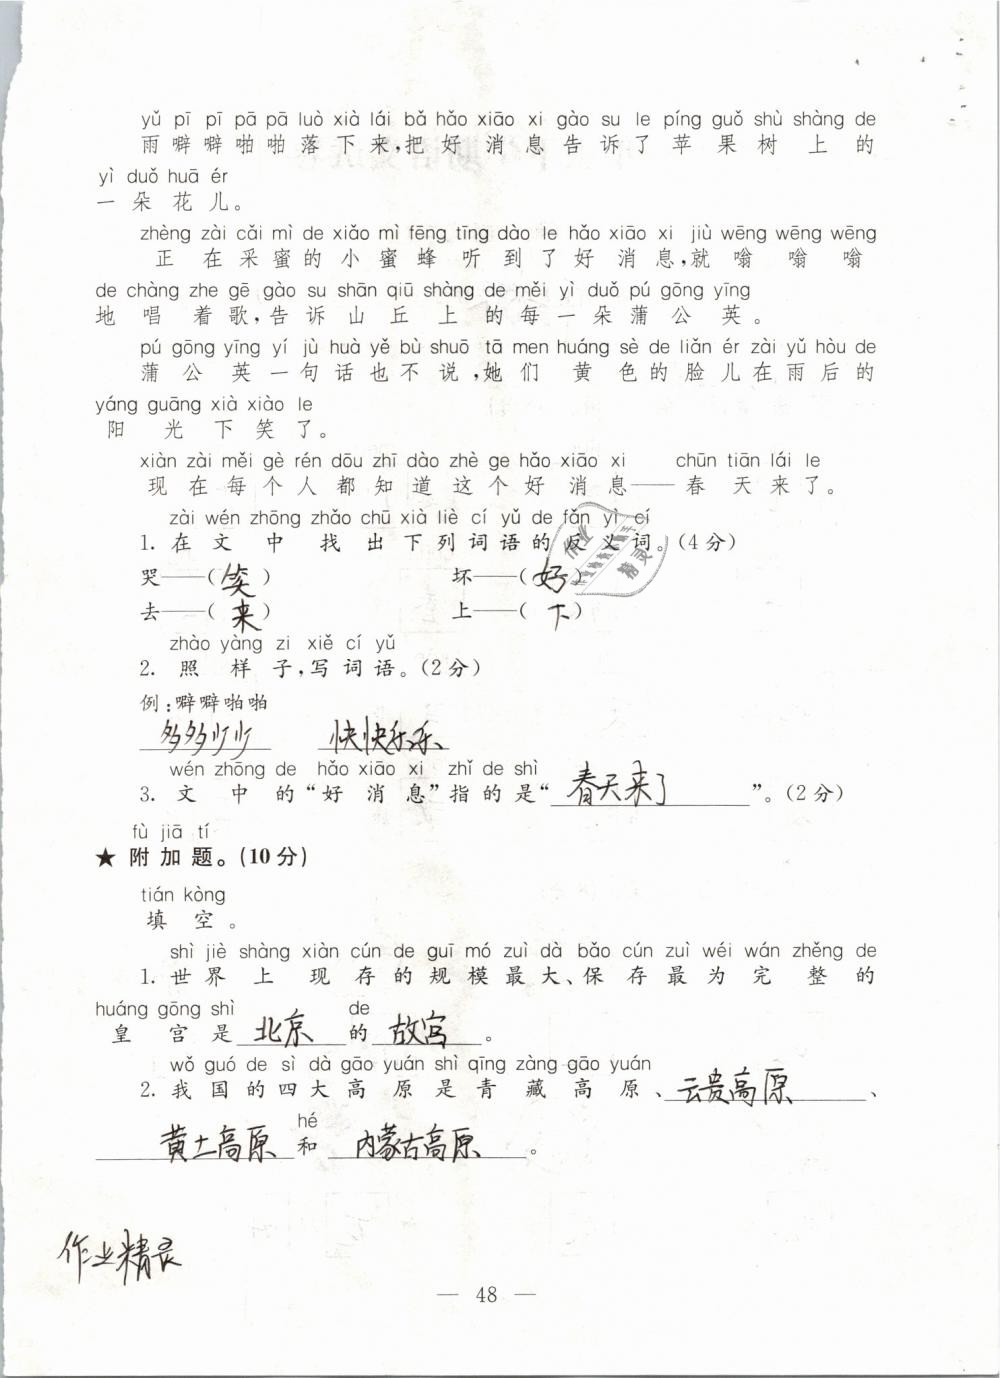 yǔ pī pī pā pā luò xià lái bǎ hǎo xiāo xi gào su le píng guǒ shù shàng de
雨噼噼啪啪落下来,把好消息告诉了苹果树上的
yì duǒ huā ér
一朵花儿。
zhèng zài cǎi mì de xiǎo mì fēng tīng dào le hǎo xiāo xi jiù wēng wēng wēng
正在采蜜的小蜜蜂听到了好消息,就嗡嗡嗡
de chàng zhe gē gào su shān qiū shàng de měi yì duǒ pú gōng yīng
地唱着歌,告诉山丘上的每一朵蒲公英。
pú gōng yīng yí jù huà yě bù shuō tā men huáng sè de liǎn ér zài yǔ hòu de
蒲公英一句话也不说,她们黄色的脸儿在雨后的
yáng guāng xià xiào le
阳光下笑了。
xiàn zài měi gè rén dōu zhī dào zhè ge hǎo xiāo xi chūn tiān lái le
现在每个人都知道这个好消息——春天来了。
zài wén zhōng zhǎo chū xià liè cí yǔ de fǎn yì cí
1. 在文中找出下列词语的反义词。(4分)
哭——(笑) 坏——(好)
去——(来) 上——(下)
zhào yàng zi xiě cí yǔ
2. 照样子,写词语。(2分)
例:噼噼啪啪
多多少少 快快乐乐
wén zhōng de hǎo xiāo xi zhǐ de shì
3. 文中的“好消息”指的是“春天来了”。(2分)
fù jiā tí
★ 附加题。(10分)
tián kòng
填空。
shì jiè shàng xiàn cún de guī mó zuì dà bǎo cún zuì wéi wán zhěng de
1. 世界上现存的规模最大、保存最为完整的
huáng gōng shì de
皇宫是北京的故宫。
wǒ guó de sì dà gāo yuán shì qīng zàng gāo yuán
2. 我国的四大高原是青藏高原、云贵高原、
hé
黄土高原和内蒙古高原。
作业精灵
— 48 —